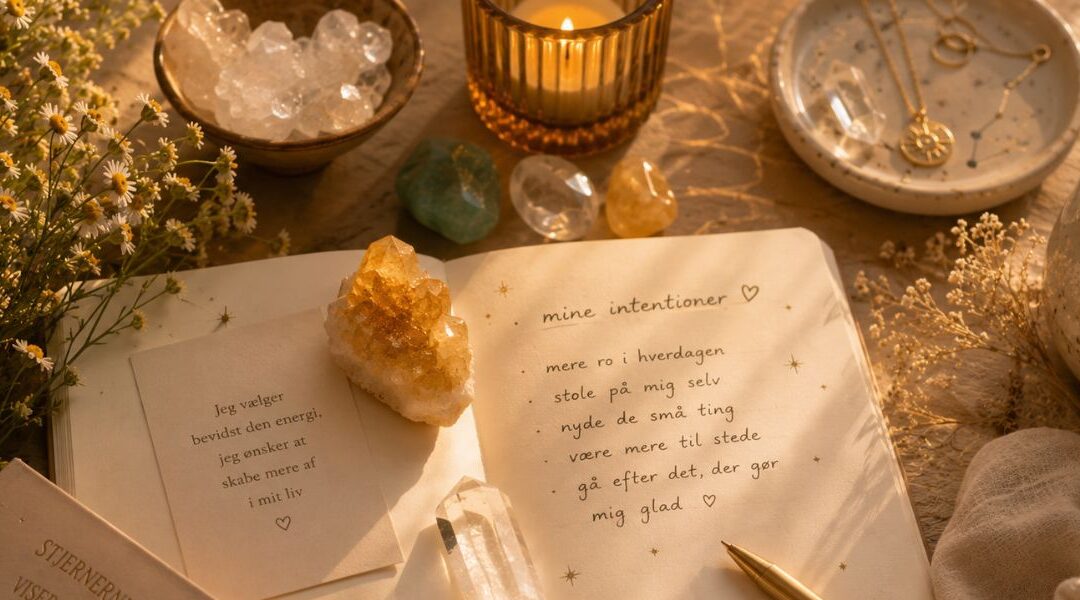 Jeg vælger
bevidst den energi,
jeg ønsker at
skabe mere af
i mit liv
mine intentioner
mere ro i hverdagen
stole på mig selv
nyde de små ting
være mere til stede
gå efter det, der gør
mig glad